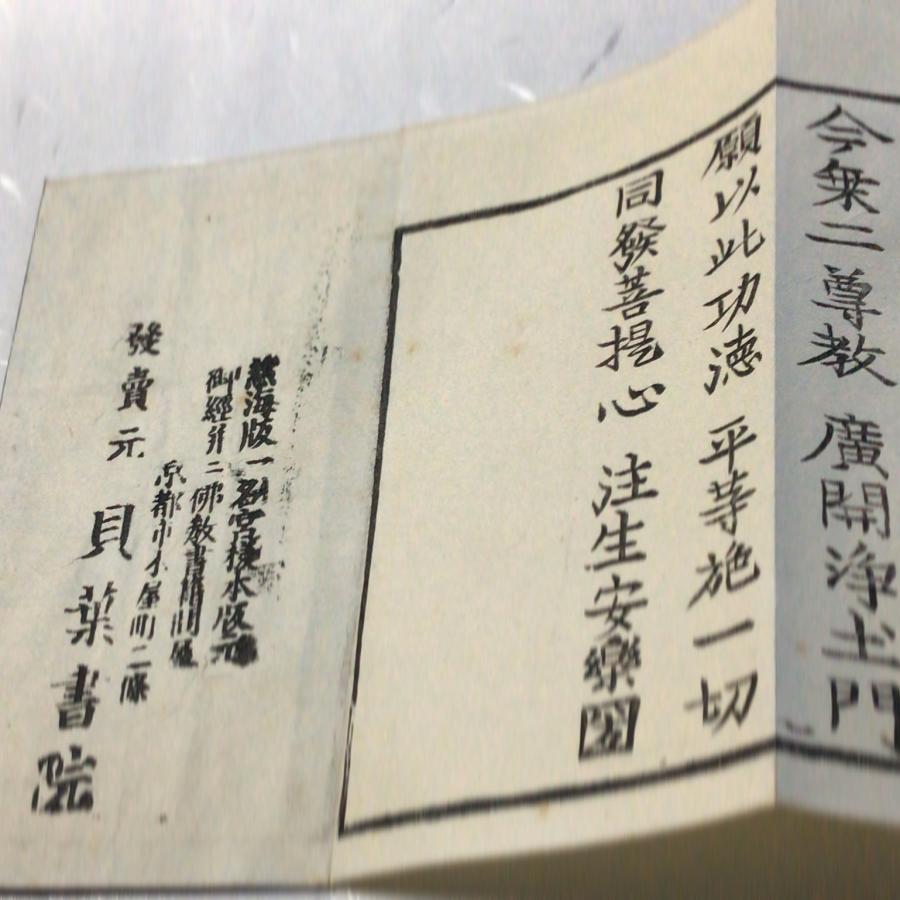 今乗二尊教 廣開浄土門
願以此功徳 平等施一切
同發菩提心 注生安樂国
海版一 宮 本版元
御經并ニ佛教書
京都市木屋町二條
發賣元 貝葉書院